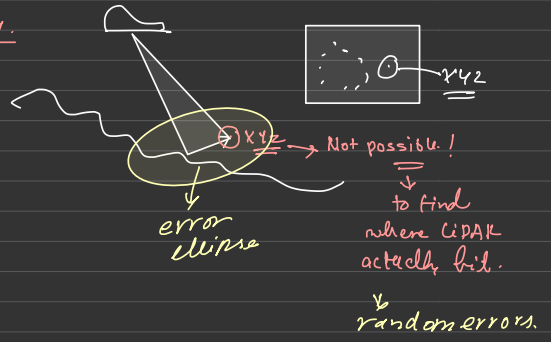 XYZ
XYZ → Not possible!
to find
where LiDAR
actually hit.
error
ellipse
random errors.